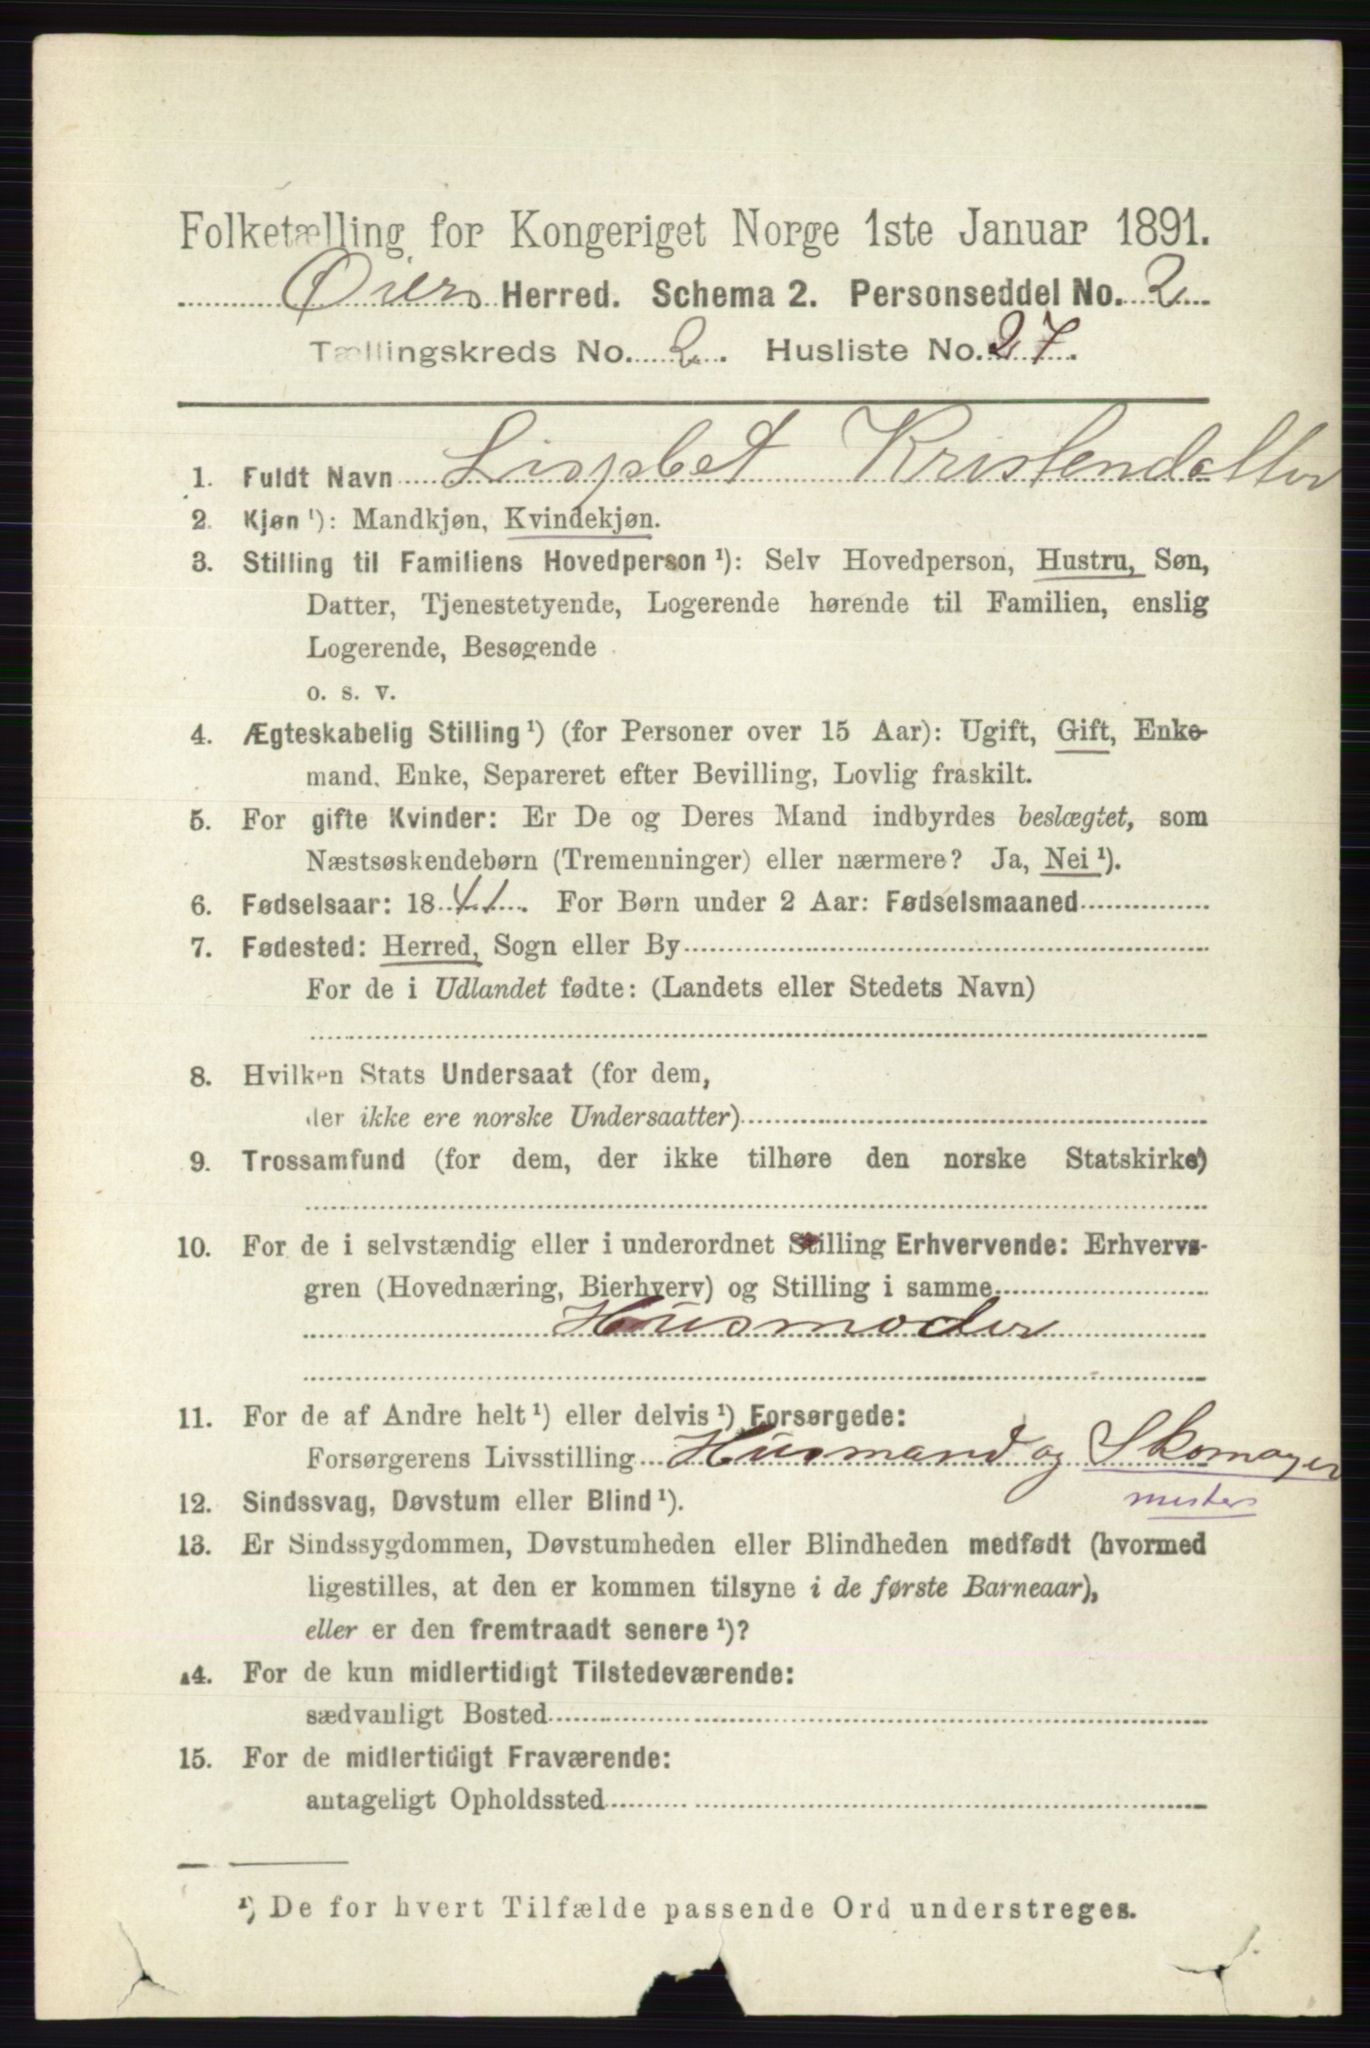 Folketælling for Kongeriget Norge 1ste Januar 1891.
Øiers Herred. Schema 2. Personseddel No. 2
Tællingskreds No. 2. Husliste No. 27.
1. Fuldt Navn Lispbet Kristendatter
2. Kjøn ¹): Mandkjøn, Kvindekjøn.
3. Stilling til Familiens Hovedperson ¹): Selv Hovedperson, Hustru, Søn,
Datter, Tjenestetyende, Logerende hørende til Familien, enslig
Logerende, Besøgende
o. s. v.
4. Ægteskabelig Stilling ¹) (for Personer over 15 Aar): Ugift, Gift, Enke-
mand, Enke, Separeret efter Bevilling, Lovlig fraskilt.
5. For gifte Kvinder: Er De og Deres Mand indbyrdes beslægtet, som
Næstsøskendebørn (Tremenninger) eller nærmere? Ja, Nei ¹).
6. Fødselsaar: 1841. For Børn under 2 Aar: Fødselsmaaned
7. Fødested: Herred, Sogn eller By
For de i Udlandet fødte: (Landets eller Stedets Navn)
8. Hvilken Stats Undersaat (for dem,
der ikke ere norske Undersaatter)
9. Trossamfund (for dem, der ikke tilhøre den norske Statskirke)
10. For de i selvstændig eller i underordnet Stilling Erhvervende: Erhvervs-
gren (Hovednæring, Bierhverv) og Stilling i samme
Husmoder
11. For de af Andre helt ¹) eller delvis ¹) Forsørgede:
Forsørgerens Livsstilling Husmand og Skomager
mester
12. Sindssvag, Døvstum eller Blind ¹).
13. Er Sindssygdommen, Døvstumheden eller Blindheden medfødt (hvormed
ligestilles, at den er kommen tilsyne i de første Barneaar),
eller er den fremtraadt senere ¹)?
14. For de kun midlertidigt Tilstedeværende:
sædvanligt Bosted
15. For de midlertidigt Fraværende:
antageligt Opholdssted
¹) De for hvert Tilfælde passende Ord understreges.